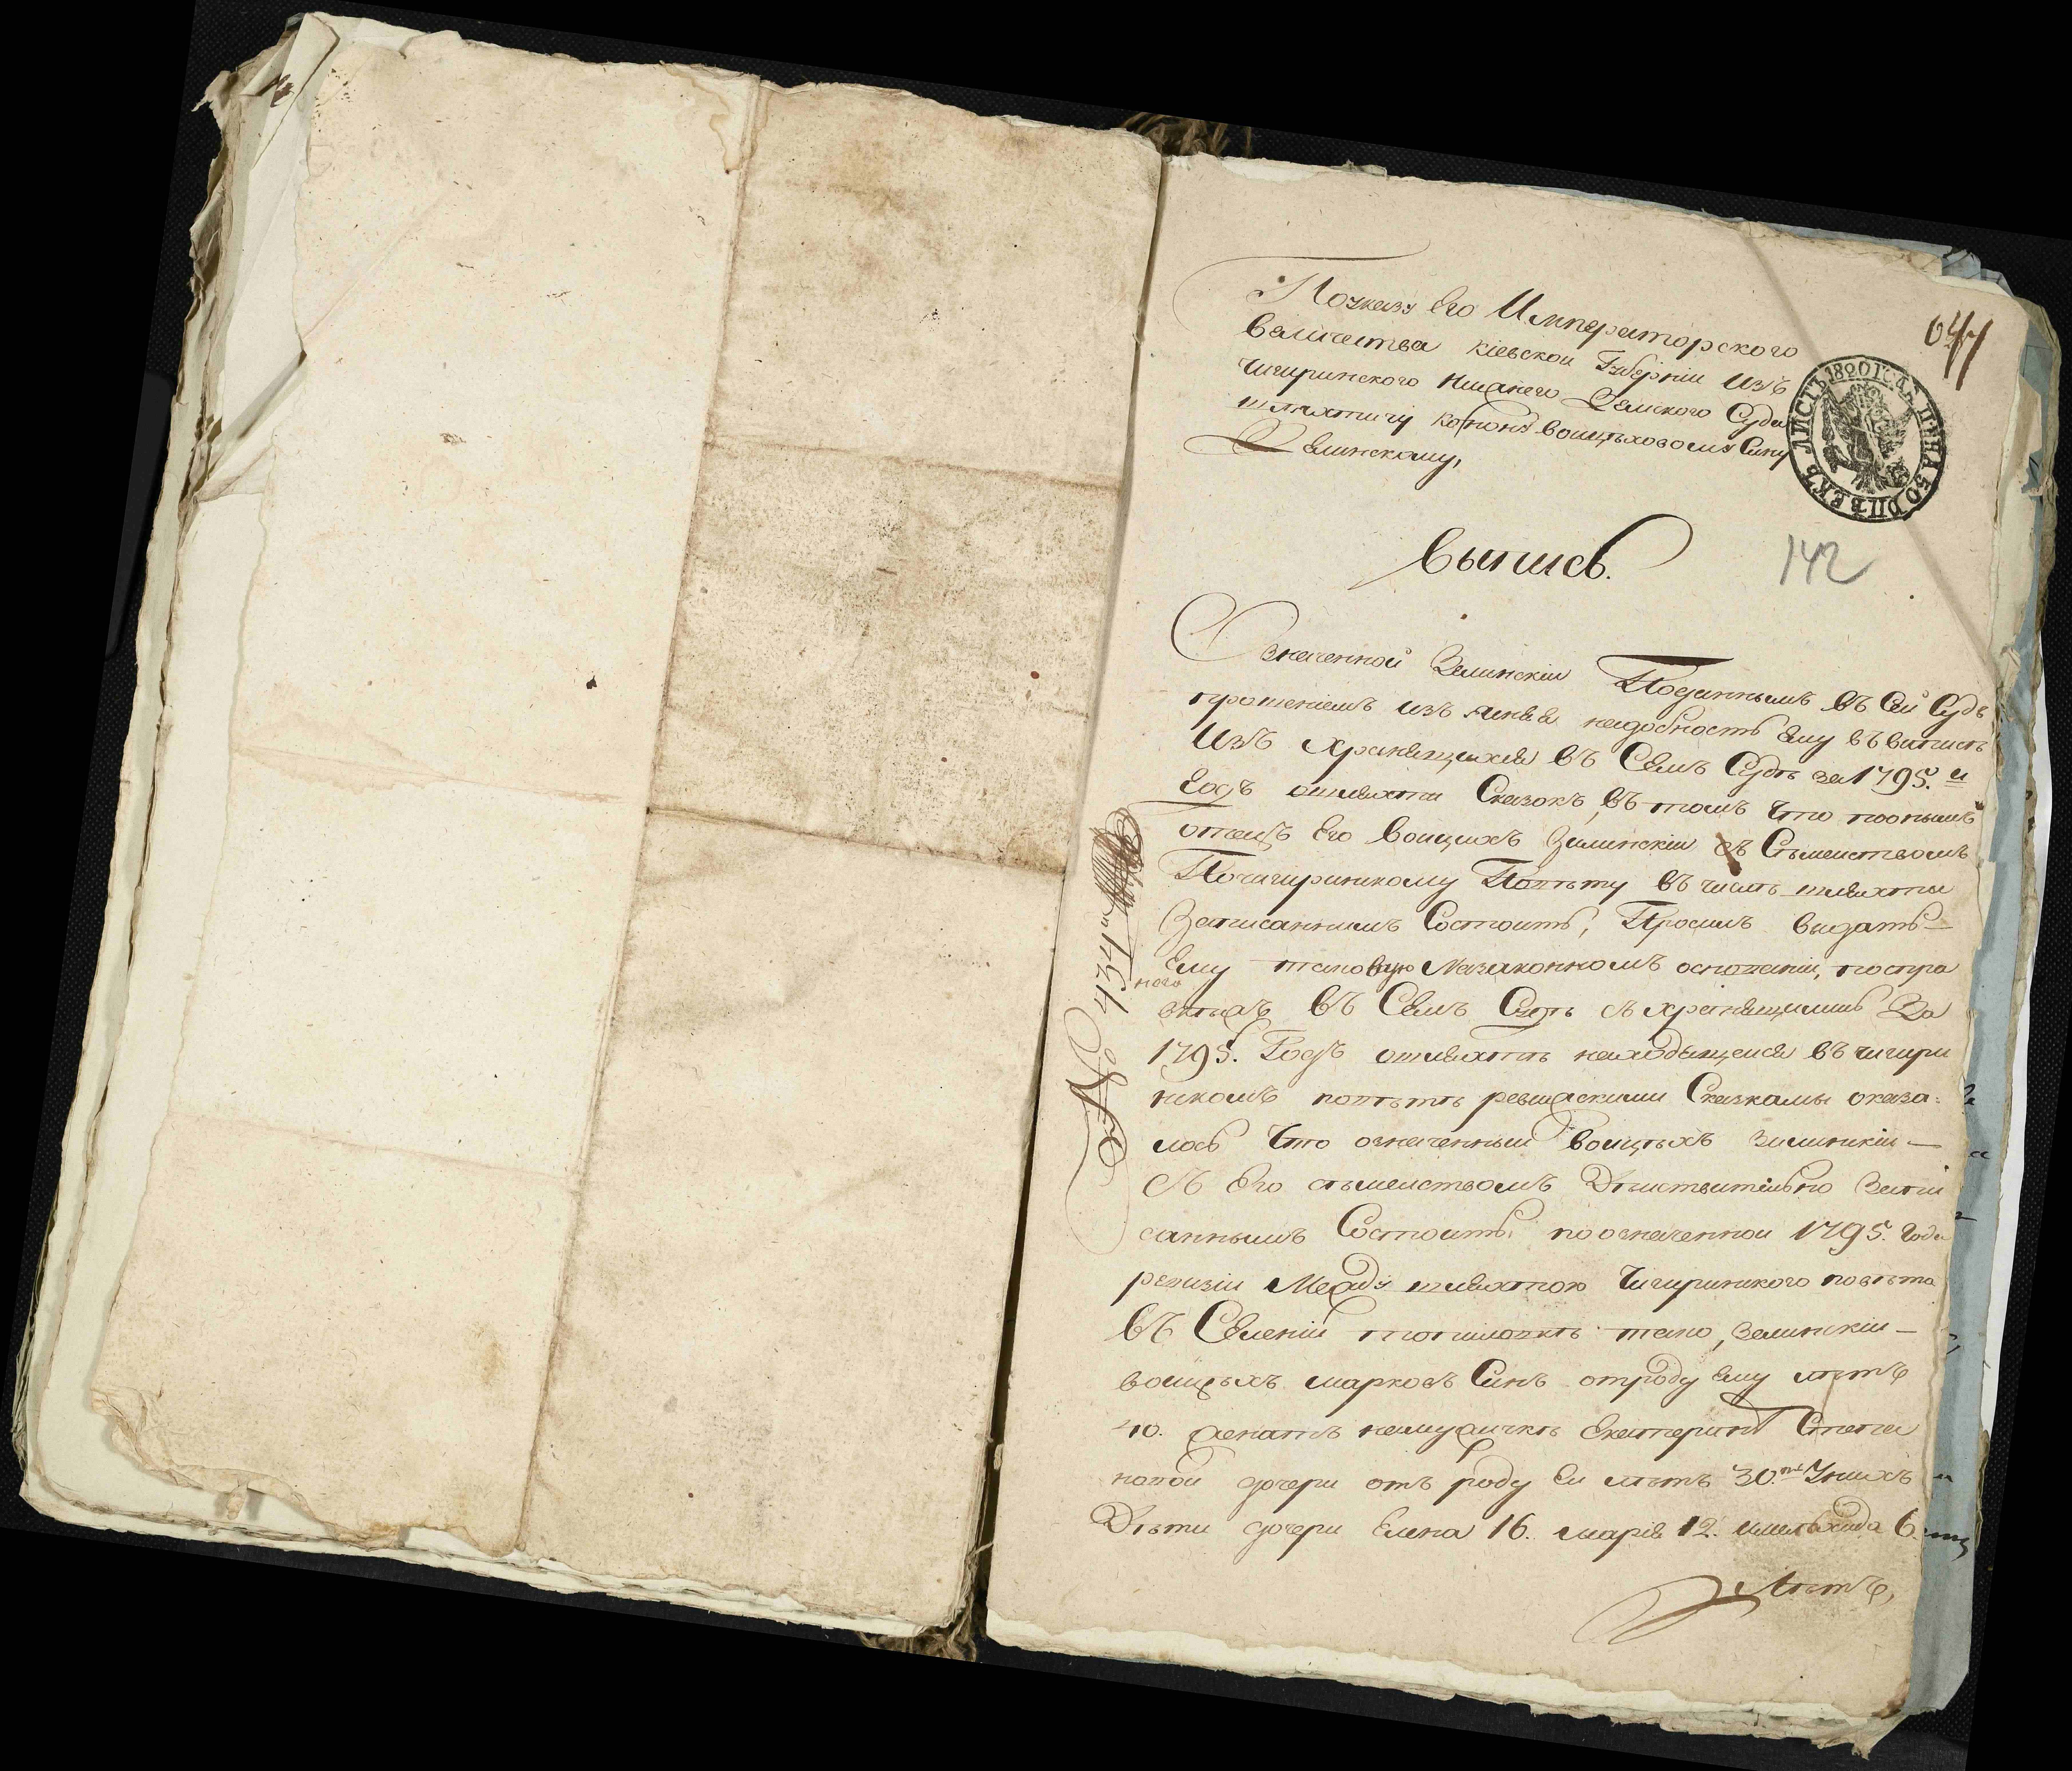 Поуказу Его Императорского
Величества Кіевской Губерніи Изъ
Чигиринского Нижнего Земского Суда
шляхтичу войцѣховому Сину
Зелинскому,
647
ЛИСТЪ 1820 ГОДА ЦѢНА 50 КОПѢЕКЪ
142
Выпись.
Означенной Зелинскій Поданнымъ въ Сей Судъ
прошеніемъ изъ надобность Ему въ выписи
Изъ хранящихся въ Семъ Судѣ за 1795.й
Годъ ошляхти Сказокъ, въ томъ Что понынѣ
отецъ Его Войцихъ Зилинскій съ Сѣмействомъ
Почигиринскому Повѣту въ числѣ шляхты
Записаннимъ Состоитъ, Просилъ выдать
Ему таковую Назаконномъ основаніи, поспра
него
вкѣ въ Семъ Судѣ съ хранящимись За
1795. Годъ ошляхтѣ находящейся въ чигири
нскомъ повѣтѣ ревижскими Сказкамы оказа:
лось Что означенный Войцѣхъ Зилинскій
съ Его сѣмействомъ Дѣиствительно Запи
саннымъ Состоитъ. поозначенной 1795. Года
ревизіи Между шляхтою Чигиринского повѣта
въ Селеніи тако, Зелинскій
войцѣхъ марковъ Синъ отроду Ему лѣтъ
40. женатъ Екатеринѣ Степа
новой дочери отъ роду Ей лѣтъ 30.ть Унихъ
Дѣти дочери Елена 16. марія 12. 6.
Лѣтъ,
№ 434